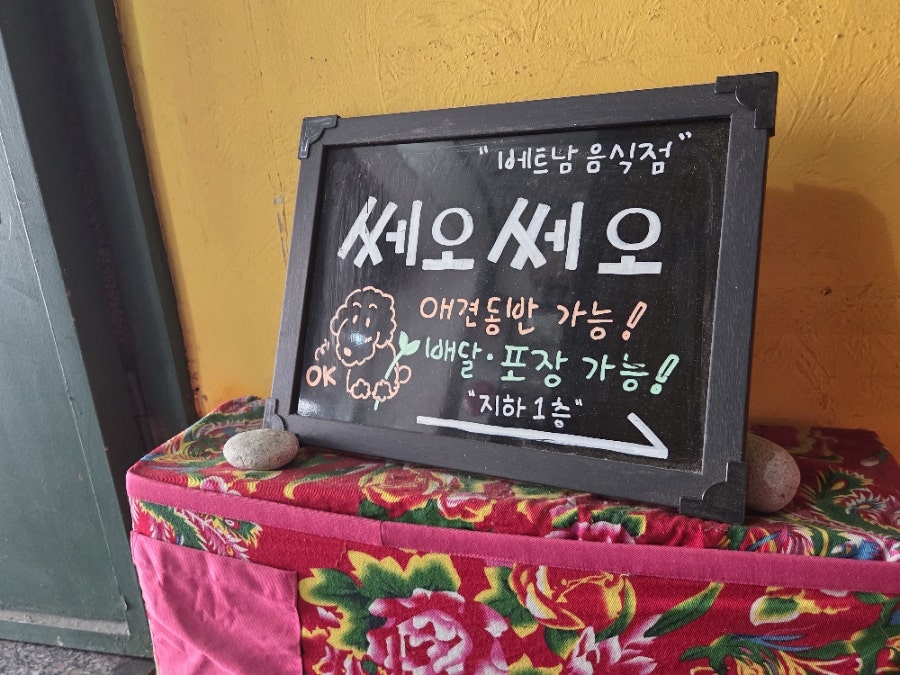 "베트남 음식점"
쎄오쎄오
애견동반 가능!
배달·포장 가능!
OK
"지하 1층"